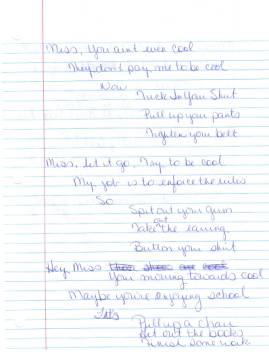 Miss, you aint even cool
They don't pay me to be cool
Now
Tuck In Your Shirt
Pull up you pants
Tighten you belt
Miss, let it go, Try to be cool
My job is to enforce the rules
So
Spit out your gum
Take out the earring
Button you shirt
Hey, Miss
You moving towards cool
Maybe you're enjoying school
Let's
Pull up a chair
Put out the books
Finish some work